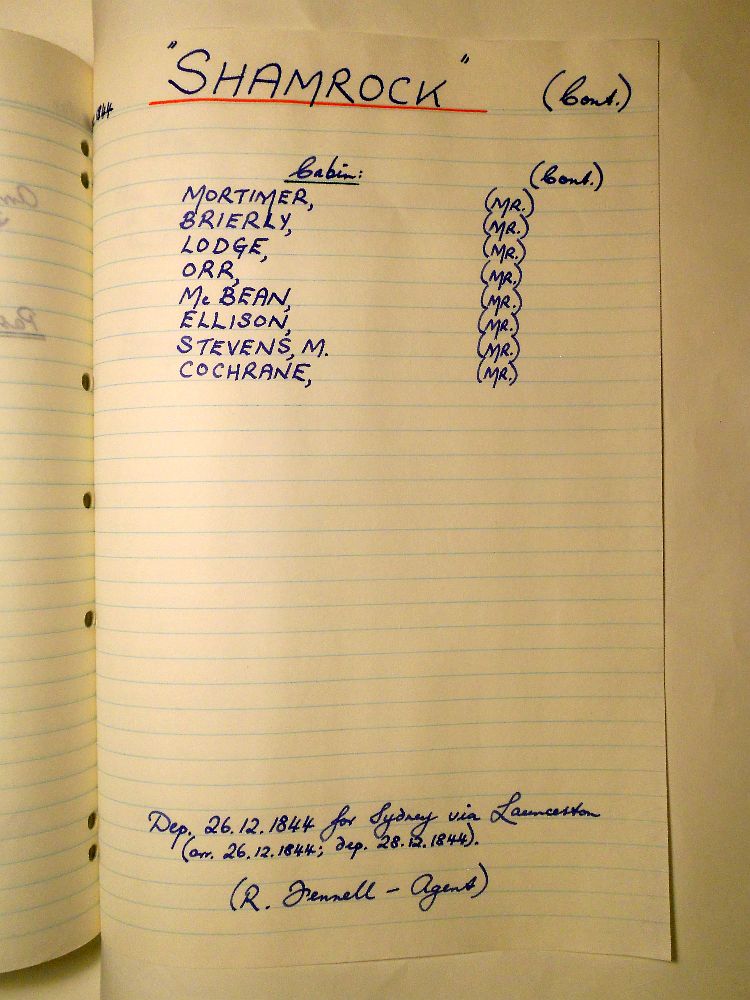 "SHAMROCK" (Cont.)
1844
Cabin: (Cont.)
MORTIMER, (MR.)
BRIERLY, (MR.)
LODGE, (MR.)
ORR, (MR.)
Mc BEAN, (MR.)
ELLISON, (MR.)
STEVENS, M. (MR.)
COCHRANE, (MR.)
Dep. 26.12.1844 for Sydney via Launceston
(arr. 26.12.1844; dep. 28.12.1844).
(R. Fennell - Agent)